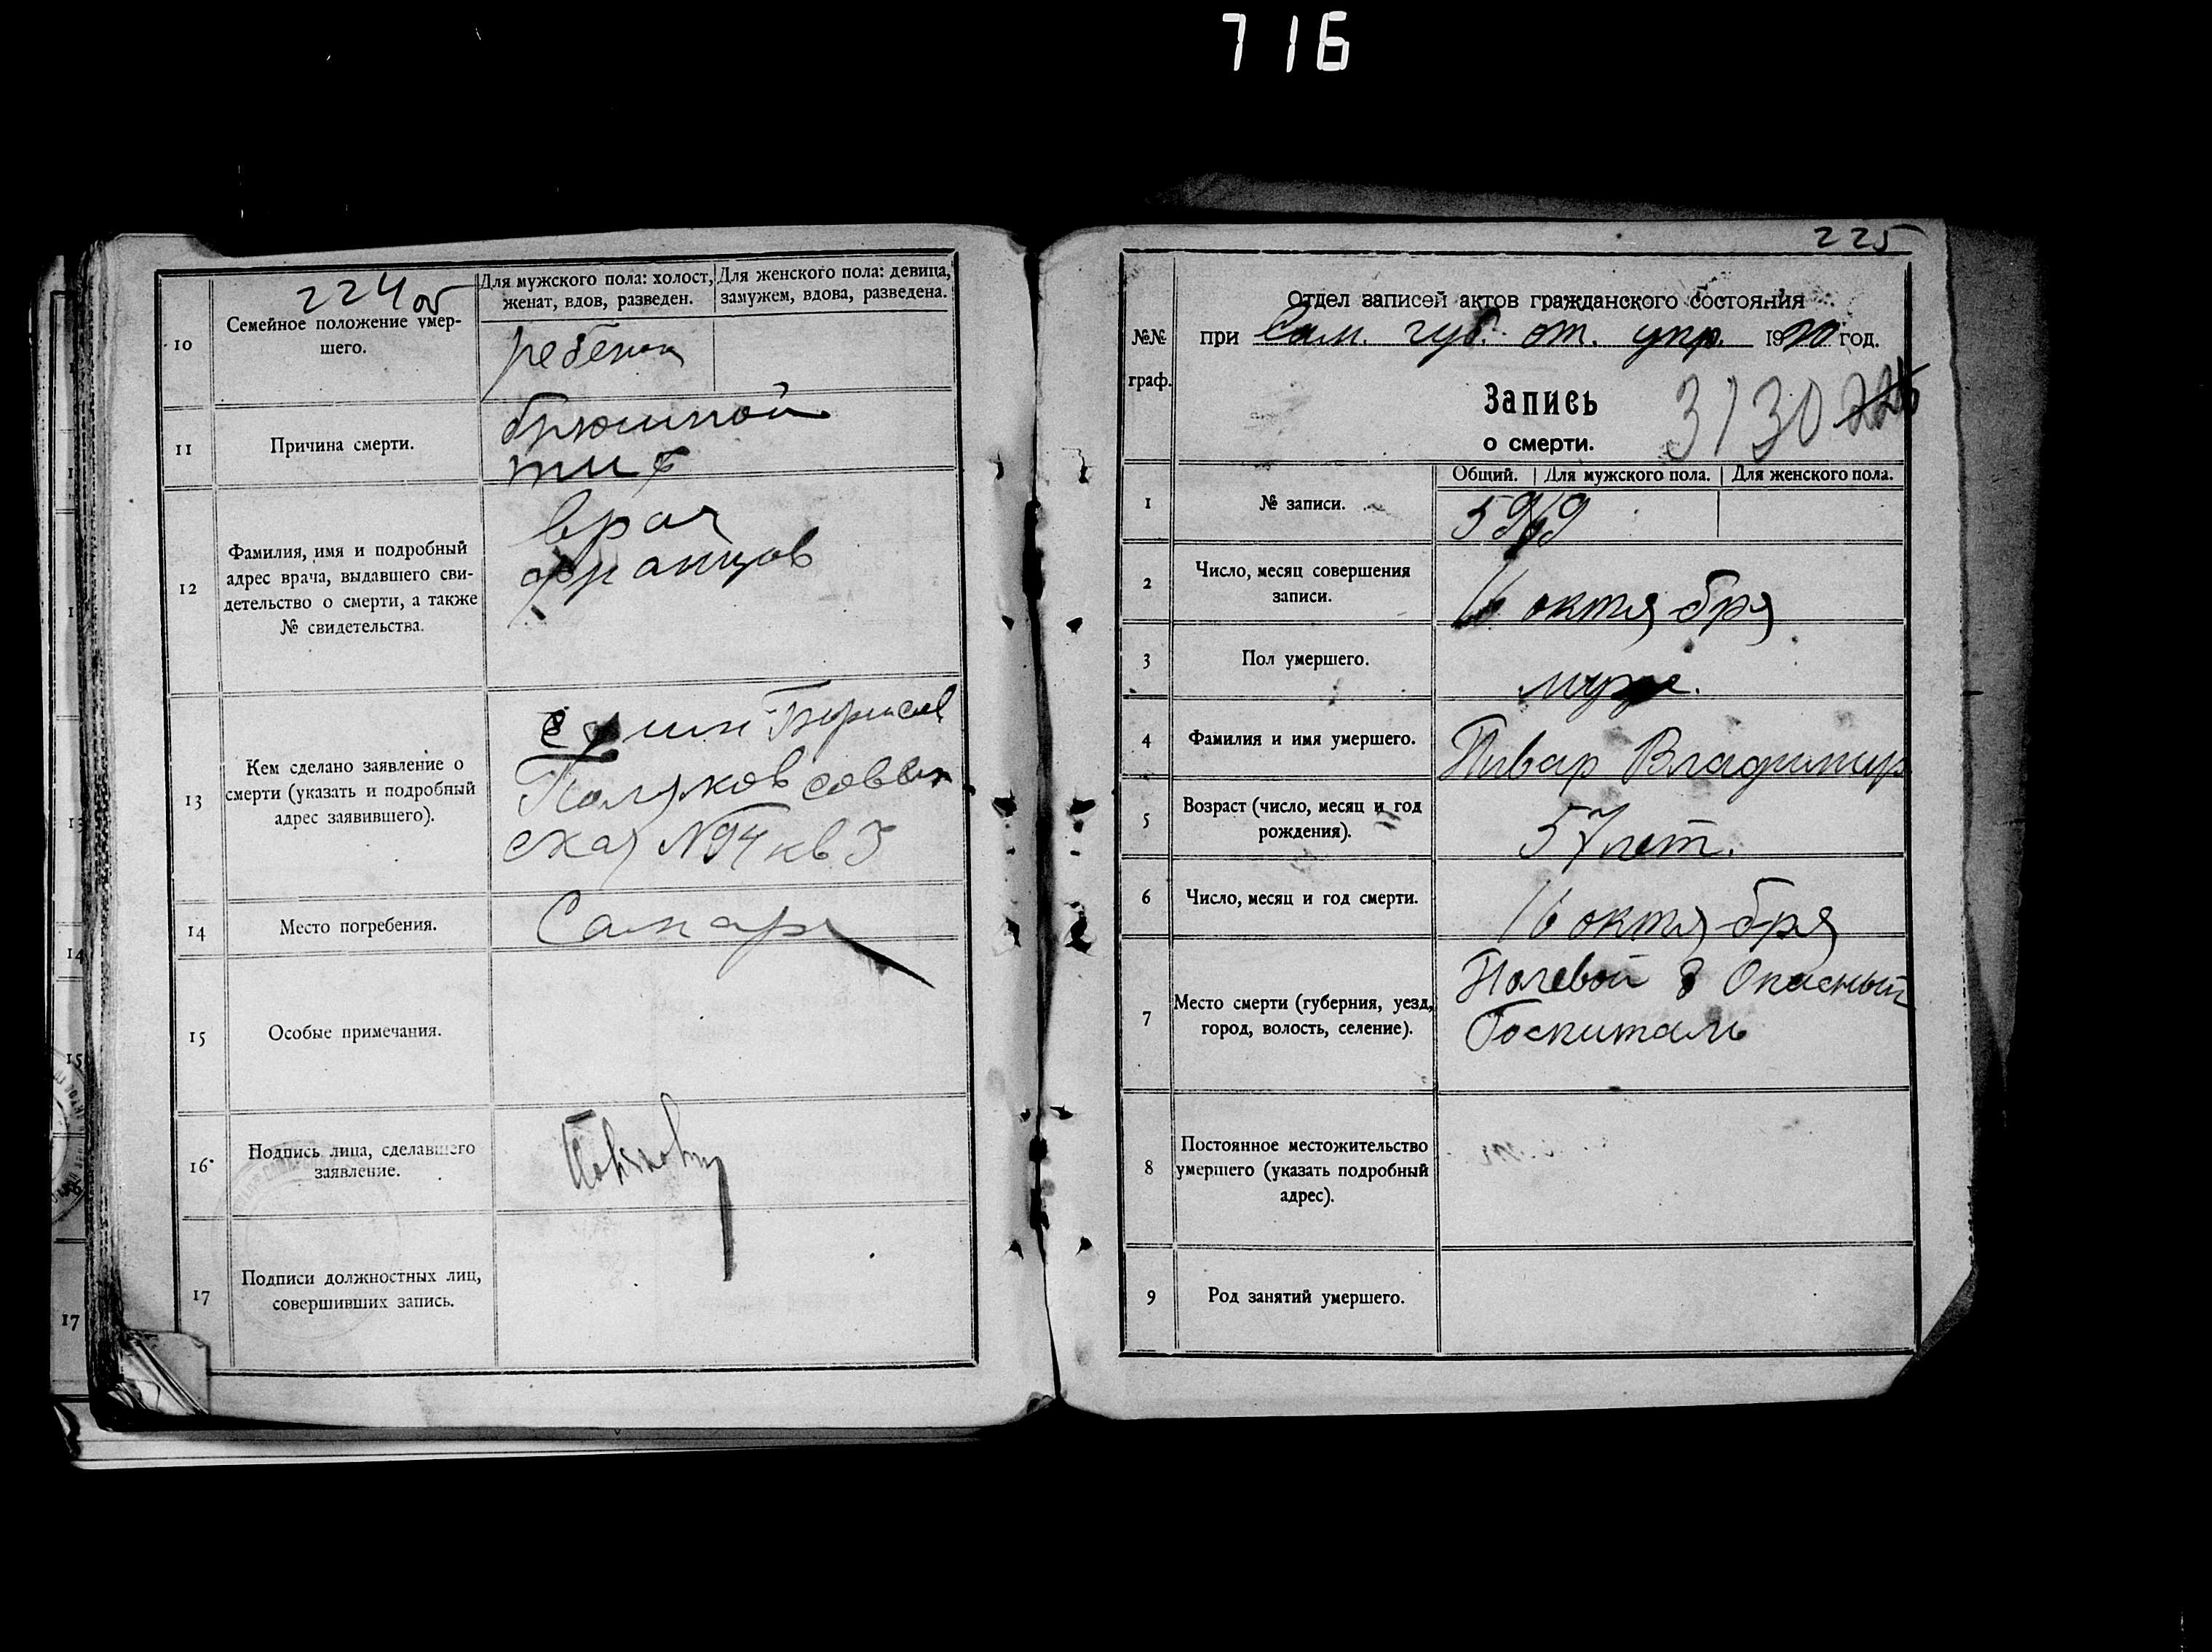 716
224 об
10
Семейное положение умер-
шего.
Для мужского пола: холост,
женат, вдов, разведен.
Для женского пола: девица,
замужем, вдова, разведена.
ребенок
11
Причина смерти.
брюшной
тиф
12
Фамилия, имя и подробный
адрес врача, выдавшего сви-
детельство о смерти, а также
№ свидетельства.
врач
Францов
13
Кем сделано заявление о
смерти (указать и подробный
адрес заявившего).
Поляков советс
ская №94 кв 5
14
Место погребения.
Самара
15
Особые примечания.
16
Подпись лица, сделавшего
заявление.
17
Подписи должностных лиц,
совершивших запись.
14
17
225
№№
граф.
Отдел записей актов гражданского состояния
при Сам. губ. от. упр. 1920 год.
Запись
о смерти.
3130
Общий.
Для мужского пола.
Для женского пола.
1
№ записи.
5969
2
Число, месяц совершения
записи.
16 октября
3
Пол умершего.
муж.
4
Фамилия и имя умершего.
Пивар Владимир
5
Возраст (число, месяц и год
рождения).
57 лет.
6
Число, месяц и год смерти.
16 октября
7
Место смерти (губерния, уезд,
город, волость, селение).
Полевой Опасный
Госпиталь
8
Постоянное местожительство
умершего (указать подробный
адрес).
9
Род занятий умершего.